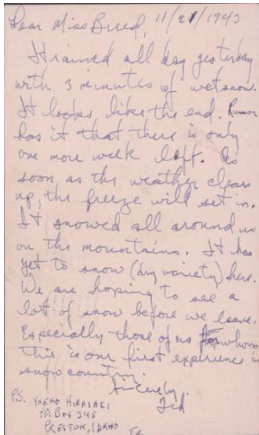 Dear Miss Breed, 11/21/1943
It rained all day yesterday
with 3 minutes of wet snow.
It looks like the end. Rumor
has it that there is only
one more week left. As
soon as the weather clears
up, the freeze will set in.
It snowed all around us
on the mountains. It has
yet to snow (dry variety) here.
We are hoping to see a
lot of snow before we leave.
Especially those of us whom
this is our first experience in
snow country.
Sincerely
Ted
P.S. Yukio Hirasaki
P.O. Box 345
Preston, Idaho